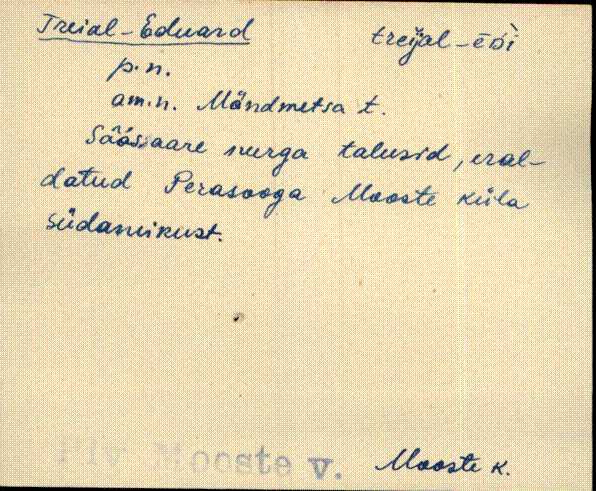 Treial-Eduard treijal-ēDì
p.n.
am.n. Mändmetsa t.
Sääsaare nurga talusid, eral-
datud Perasooga Mooste küla
südamikust.
Plv Mooste v. Mooste k.